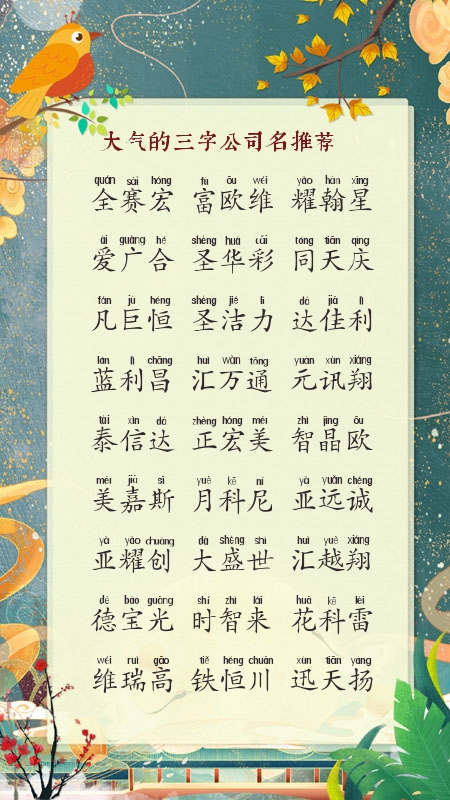 大气的三字公司名推荐
quán sài hóng fù ōu wéi yào hàn xīng
全赛宏 富欧维 耀翰星
ài guǎng hé shèng huá cǎi tóng tiān qìng
爱广合 圣华彩 同天庆
fán jù héng shèng jié lì dá jiā lì
凡巨恒 圣洁力 达佳利
lán lì chāng huì wàn tōng yuán xùn xiáng
蓝利昌 汇万通 元讯翔
tài xìn dá zhèng hóng měi zhì jīng ōu
泰信达 正宏美 智晶欧
měi jiā sī yuè kē ní yà yuǎn chéng
美嘉斯 月科尼 亚远诚
yà yào chuàng dà shèng shì huì yuè xiáng
亚耀创 大盛世 汇越翔
dé bǎo guāng shí zhì lái huā kē léi
德宝光 时智来 花科雷
wéi ruì gāo tiě héng chuān xùn tiān yáng
维瑞高 铁恒川 迅天扬